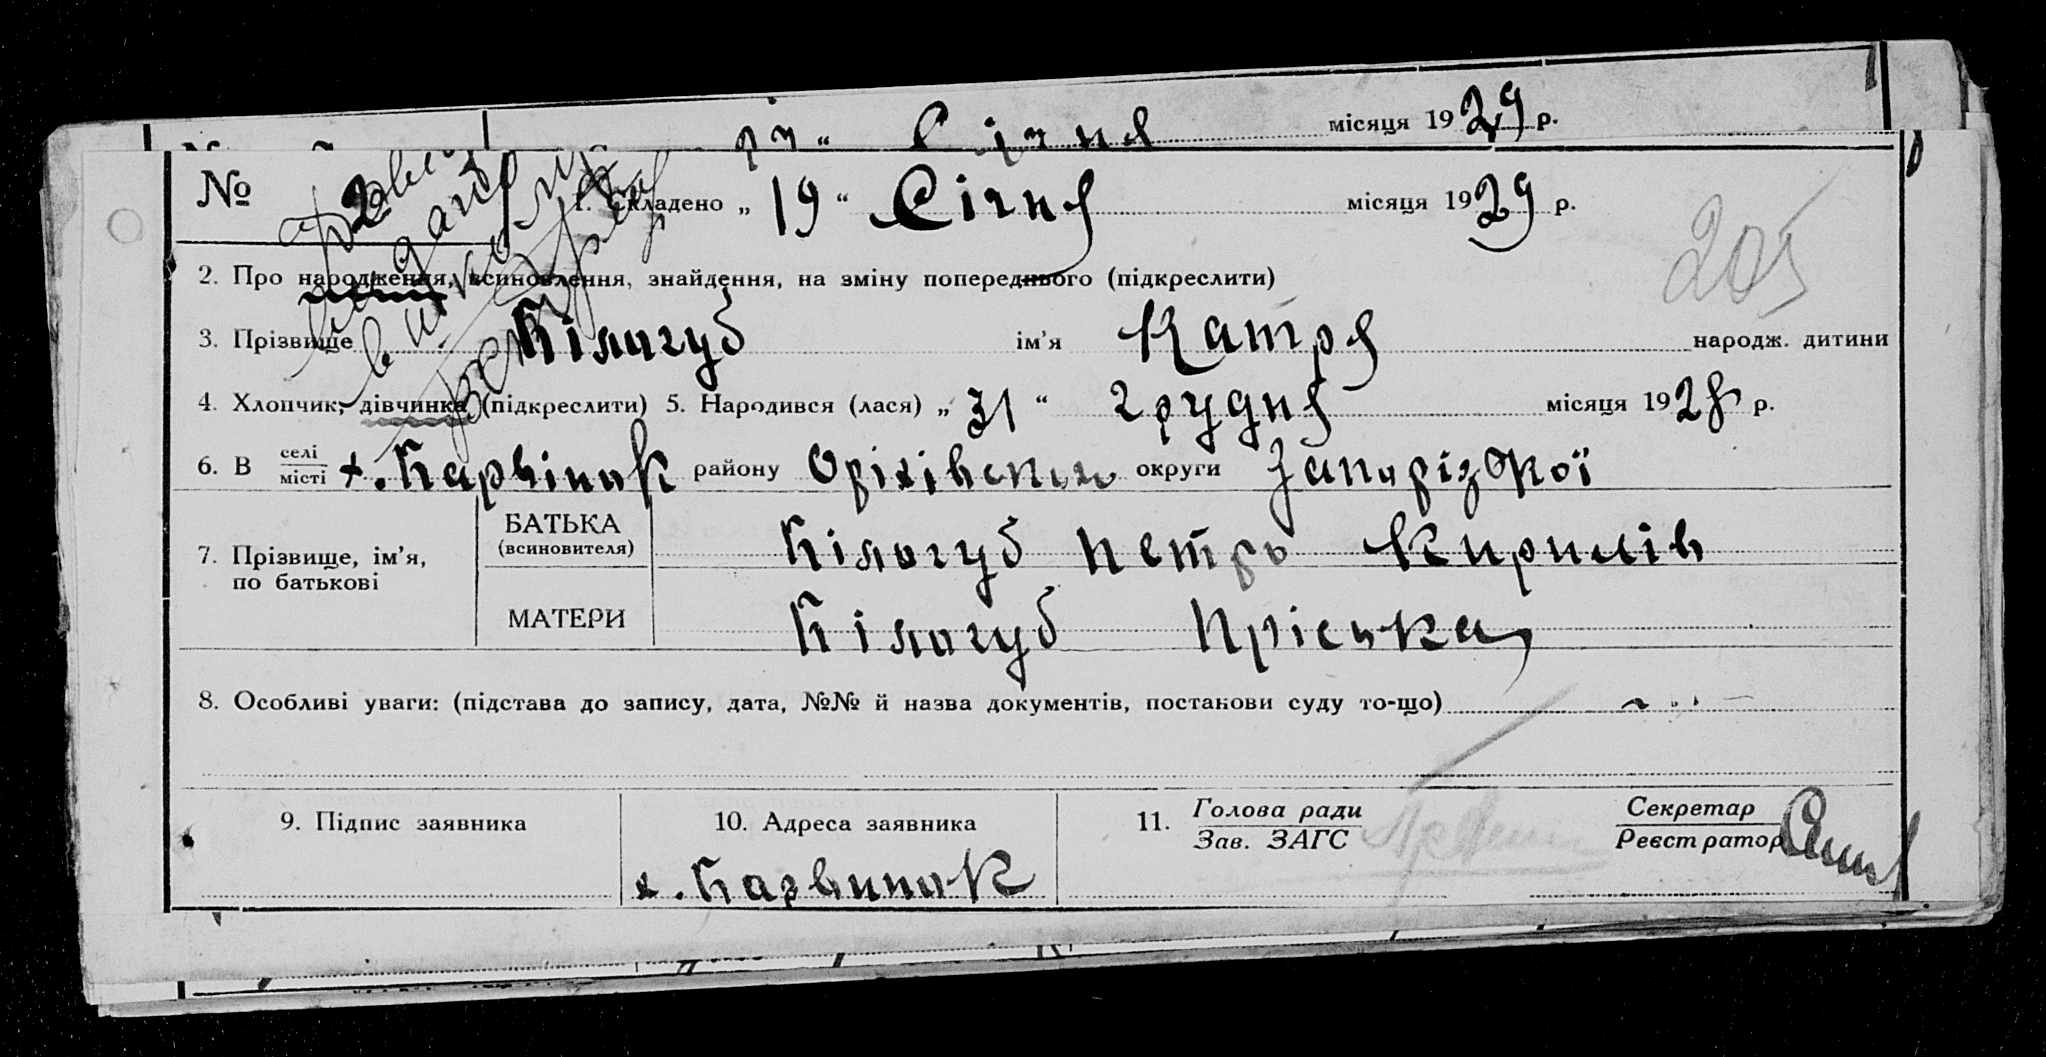 Січня місяця 1929 р.
№ 2 1. Складено „ 19 “ Січня місяця 1929 р.
205
2. Про народження, всиновлення, знайдення, на зміну попереднього (підкреслити)
3. Прізвище Білогуб ім’я Катря народж. дитини
4. Хлопчик, дівчинка (підкреслити) 5. Народився (лася) „ 31 “ грудня місяця 1928 р.
6. В селі місті х. Барвінок району Оріхівськ. округи Запорізької
7. Прізвище, ім’я, по батькові
БАТЬКА (всиновителя) Білогуб Петро Кирилів
МАТЕРИ Білогуб Пріська
8. Особливі уваги: (підстава до запису, дата, №№ й назва документів, постанови суду то-що)
9. Підпис заявника 10. Адреса заявника 11. Голова ради Зав. ЗАГС Секретар Реєстратор
х. Барвинок